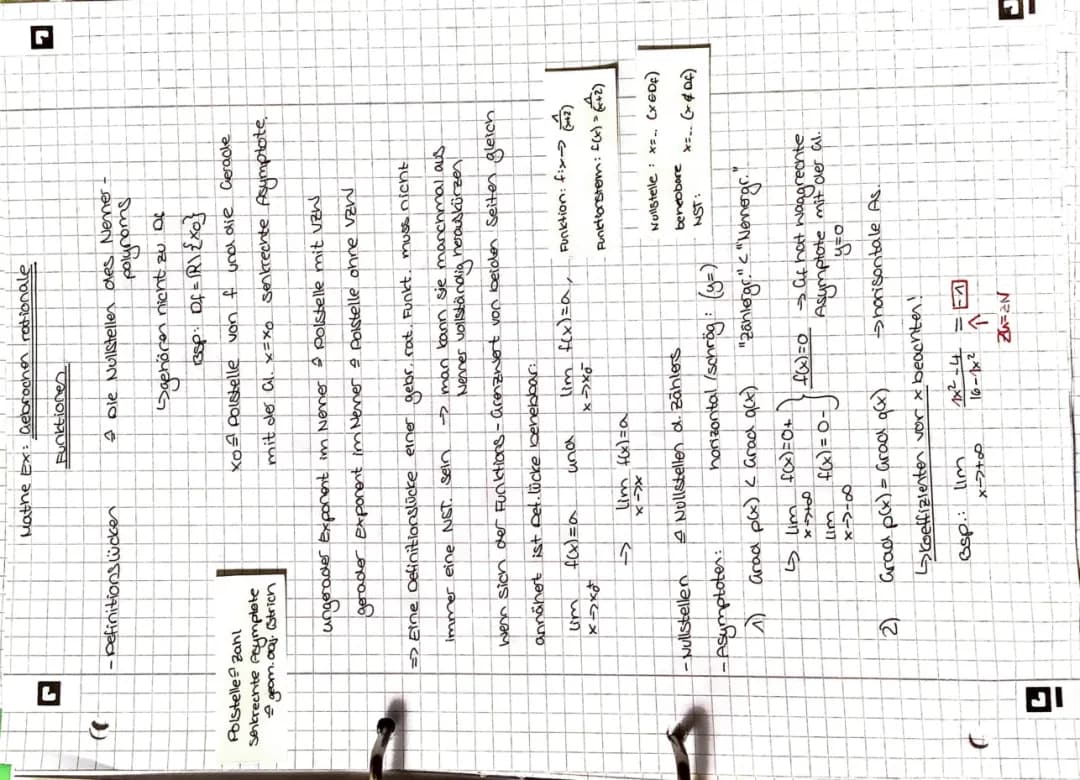 Mathe Ex: Gebrochen rationale
Funktionen
- Definitionslücken ≙ Die Nullstellen des Nenner-
polynoms
↳ gehören nicht zu Df
Bsp: Df = ℝ\{x0}
Polstelle ≙ Zahl
Senkrechte Asymptote
≙ geom. Obj. / Strich
x0 ≙ Polstelle von f und die Gerade
mit der Gl. x=x0 senkrechte Asymptote.
ungerader Exponent im Nenner ≙ Polstelle mit VZW
gerader Exponent im Nenner ≙ Polstelle ohne VZW
=> Eine Definitionslücke einer gebr. rat. Funkt. muss nicht
immer eine NST. sein → man kann sie manchmal aus
Nenner vollständig herauskürzen
Wenn sich der Funktions-Grenzwert von beiden Seiten gleich
annähert ist Def.lücke behebbar:
lim f(x)=a und lim f(x)=a,
x→x0⁺ x→x0⁻
→ lim f(x)=a
x→x
Funktion: f:x→ 1/(x+2)
Funktionsterm: f(x) = 1/(x+2)
- Nullstellen ≙ Nullstellen d. Zählers
Nullstelle: x=.. (x∈Df)
behebbare x=... (x∉Df)
NST:
- Asymptoten: horizontal/schräg: (y=)
1) Grad p(x) < Grad q(x) "Zählergr." < "Nennergr."
↳ lim f(x)=0+ } f(x)=0 → Gf hat waagrechte
x→+∞
lim f(x)=0- Asymptote mit der Gl.
x→-∞ y=0
2) Grad p(x) = Grad q(x) → horisontale As.
↳ Koeffizienten vor x beachten!
Bsp.: lim 1x²-4 / 16-1x² = -1
x→+∞ ↑
ZG=NG